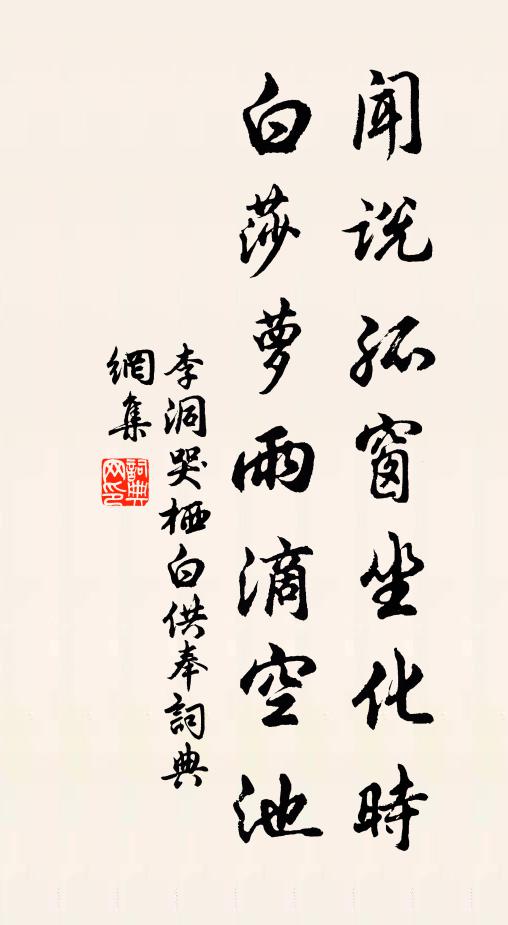 聞說孤窗坐化時
白莎蘿雨滴空池
李洞哭栖白供奉詞典
網集
詞典
网印